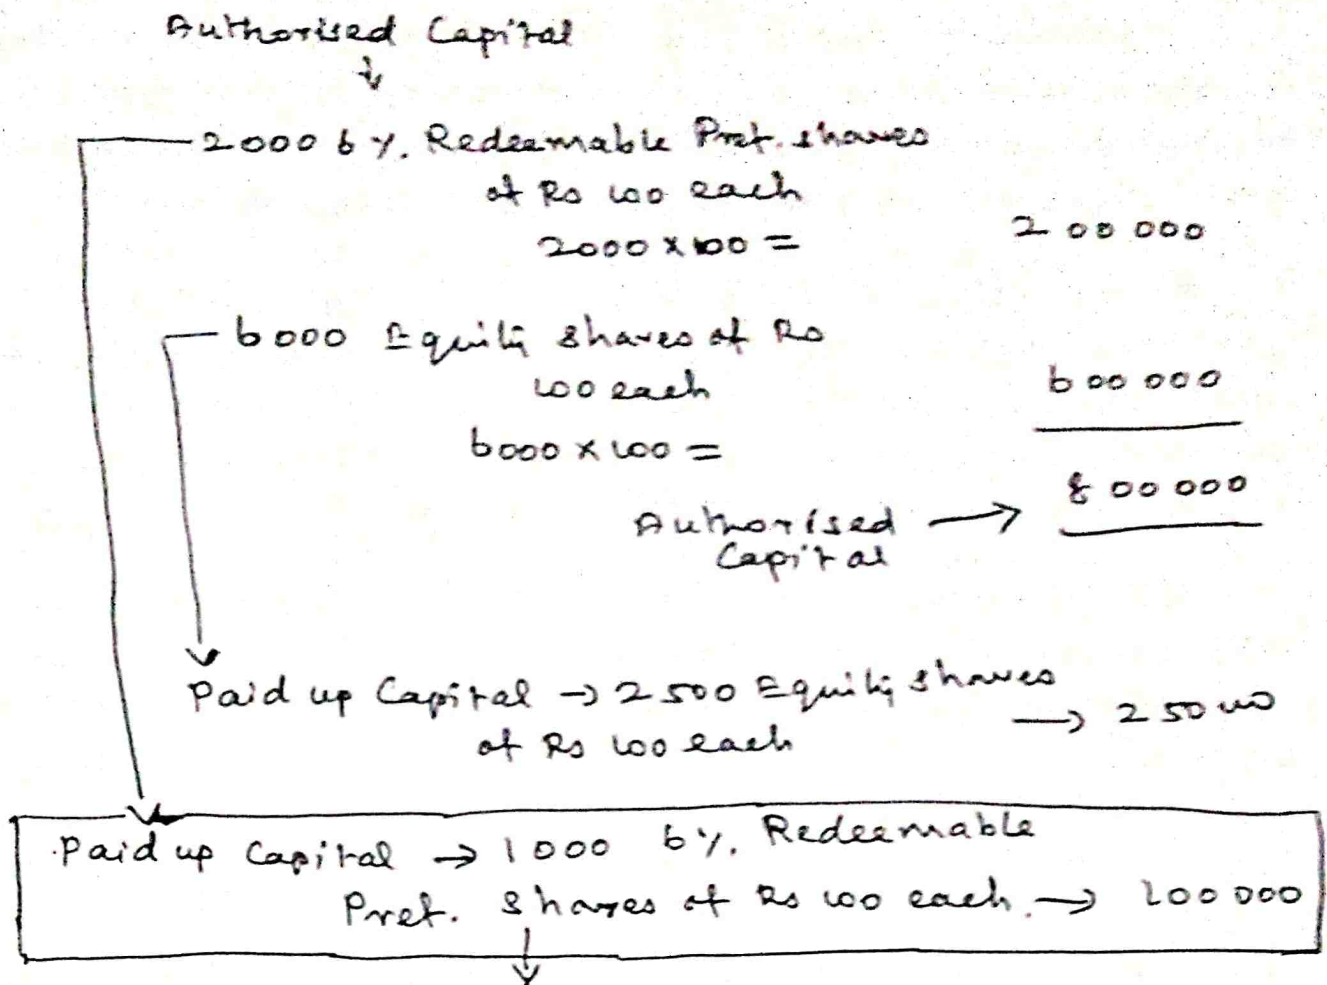 Authorised Capital
2000 6%. Redeemable Pref. shares
of Rs 100 each
2000 x 100 = 200 000
6000 Equity shares of Rs
100 each 600 000
6000 x 100 =
800 000
Authorised →
Capital
Paid up Capital → 2500 Equity shares
→ 250
of Rs 100 each
Paid up Capital → 1000 6%. Redeemable
Pref. shares of Rs 100 each. → 100 000